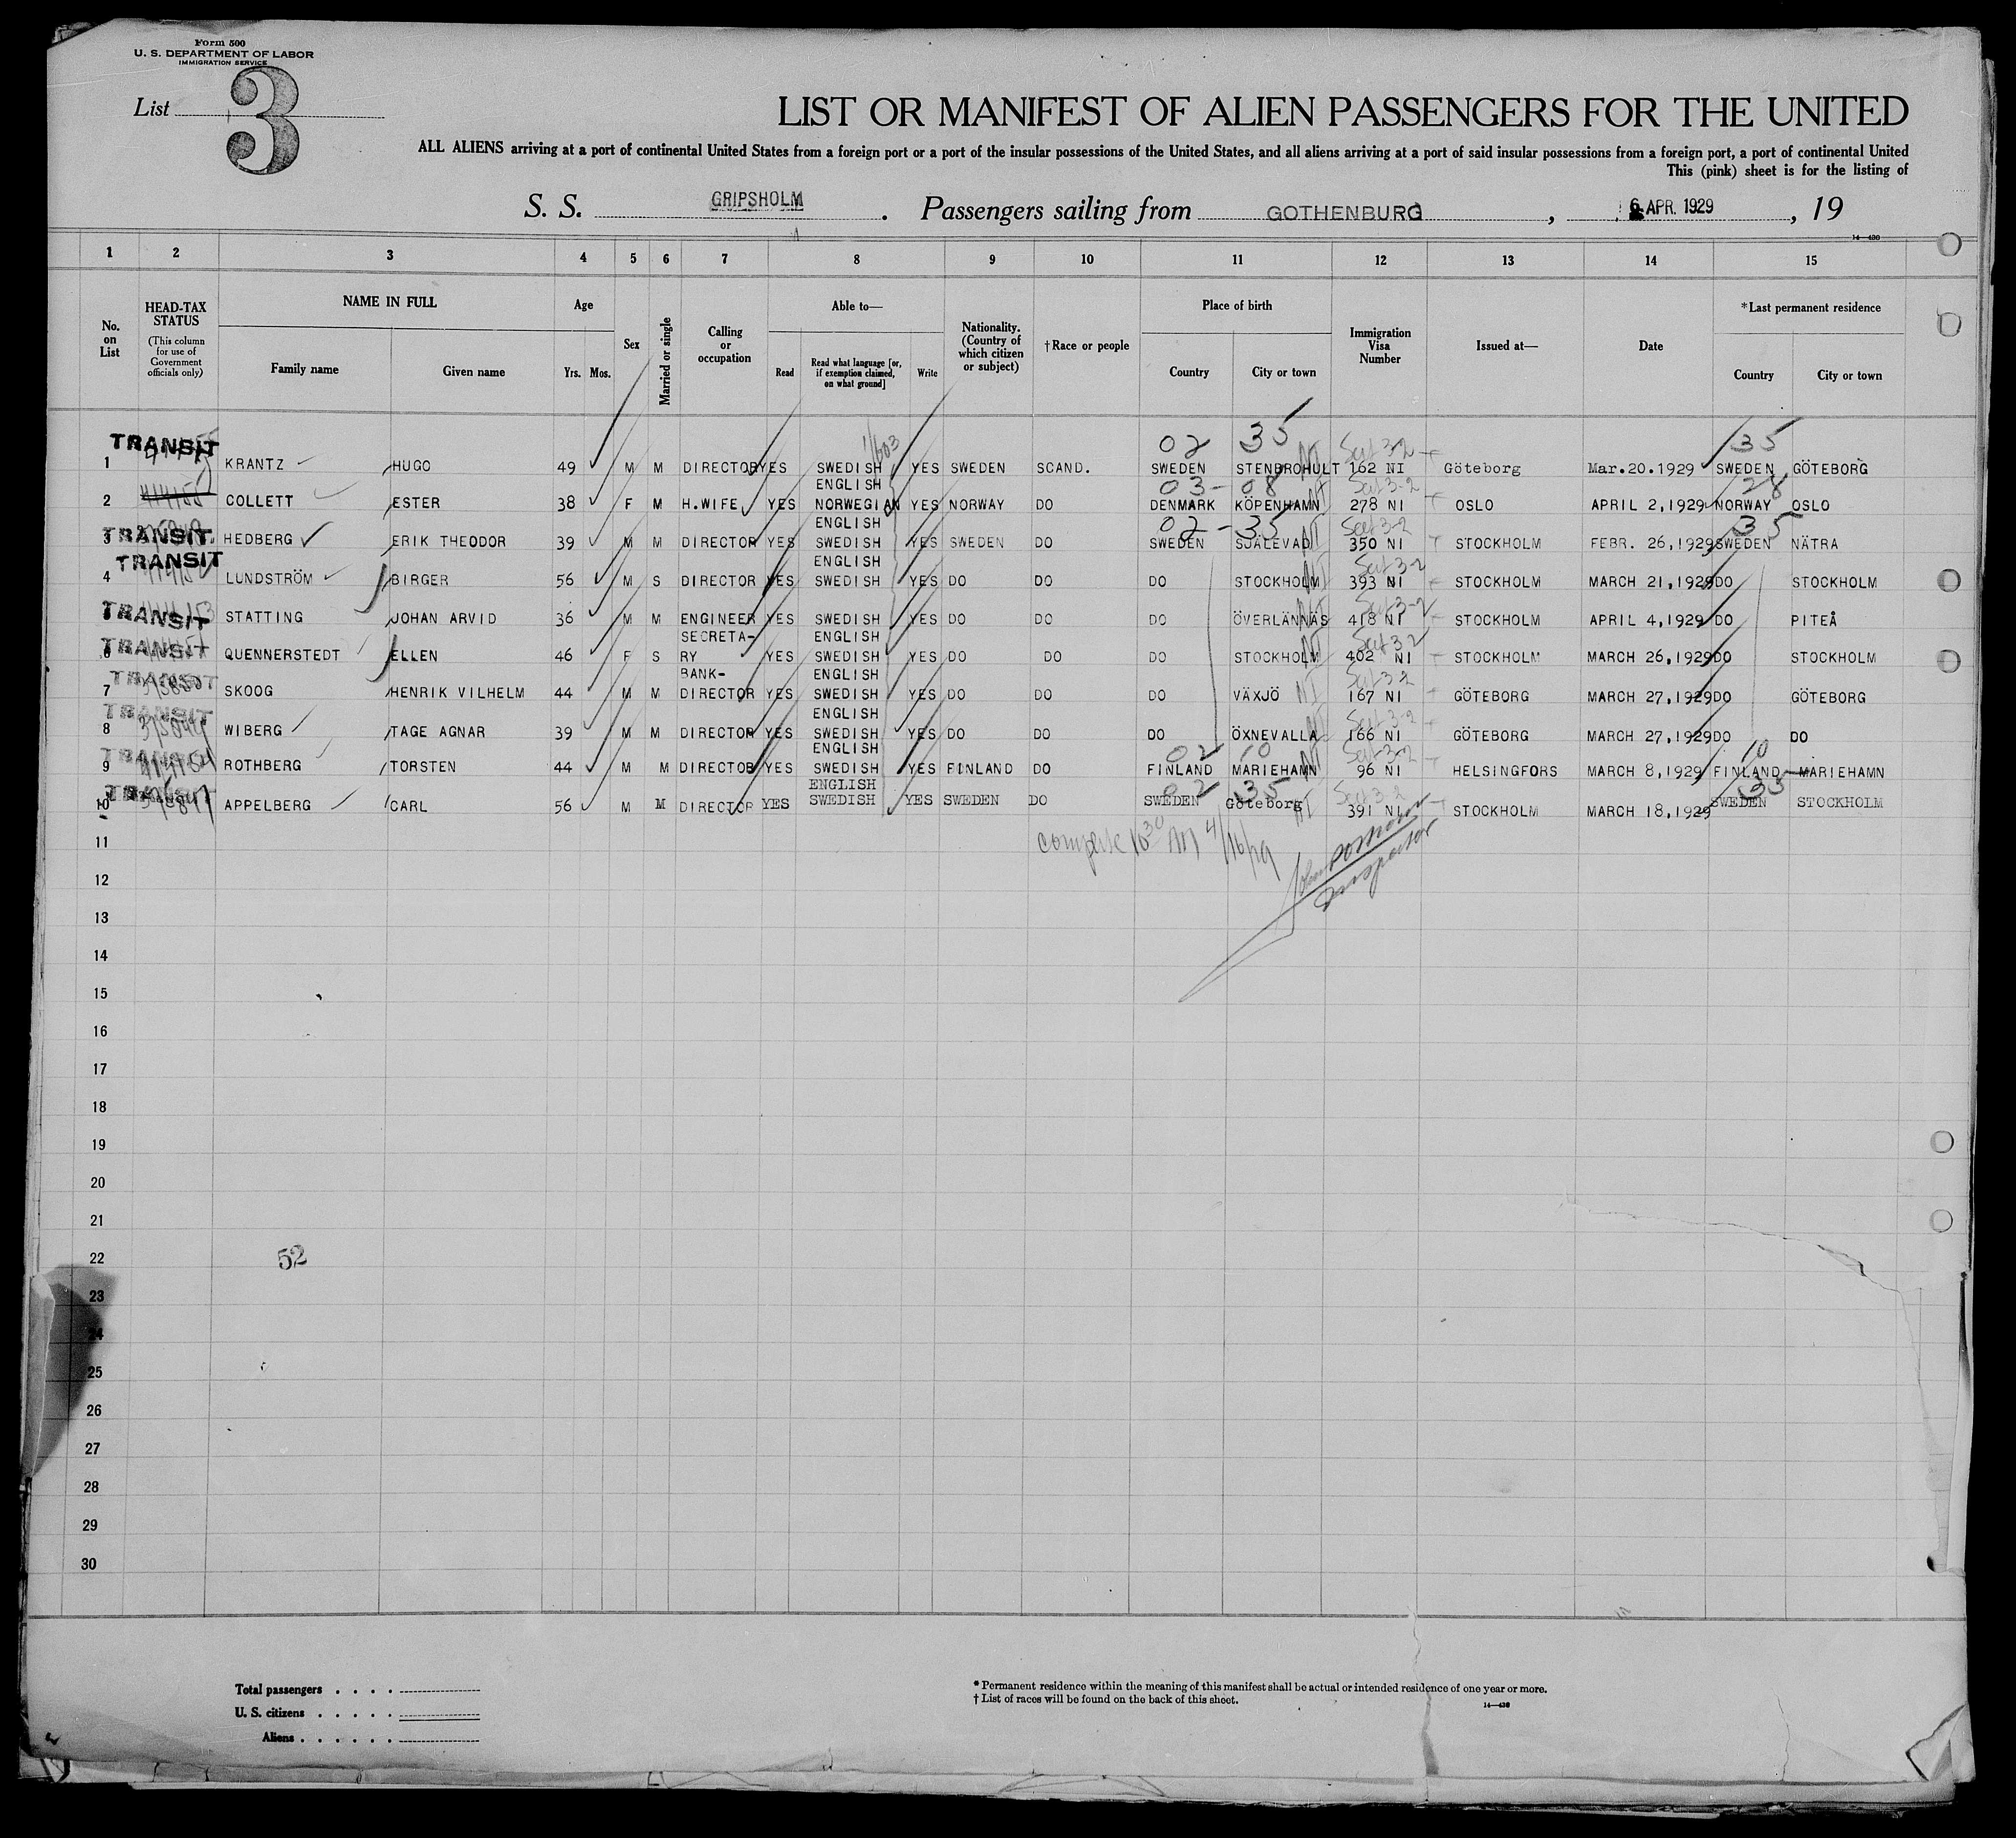 Form 500
U. S. DEPARTMENT OF LABOR
IMMIGRATION SERVICE
List 3
LIST OR MANIFEST OF ALIEN PASSENGERS FOR THE UNITED
ALL ALIENS arriving at a port of continental United States from a foreign port or a port of the insular possessions of the United States, and all aliens arriving at a port of said insular possessions from a foreign port, a port of continental United
This (pink) sheet is for the listing of
S. S. GRIPSHOLM . Passengers sailing from GOTHENBURG , 6 APR. 1929 , 19
14—430
1 2 3 4 5 6 7 8 9 10 11 12 13 14 15
No. on List
HEAD-TAX STATUS
(This column for use of Government officials only)
NAME IN FULL
Family name Given name
Age
Yrs. Mos.
Sex
Married or single
Calling or occupation
Able to—
Read Read what language [or, if exemption claimed, on what ground] Write
Nationality. (Country of which citizen or subject)
†Race or people
Place of birth
Country City or town
Immigration Visa Number
Issued at—
Date
*Last permanent residence
Country City or town
02 35 Sect 3-2 35
TRANSIT 1 KRANTZ HUGO 49 M M DIRECTOR YES SWEDISH YES SWEDEN SCAND. SWEDEN STENBROHULT 162 NI Göteborg Mar.20.1929 SWEDEN GÖTEBORG
ENGLISH 03 - 08 Sect 3-2 28
2 COLLETT ESTER 38 F M H.WIFE YES NORWEGIAN YES NORWAY DO DENMARK KÖPENHAMN 278 NI OSLO APRIL 2,1929 NORWAY OSLO
ENGLISH 02 - 35 Sect 3-2 35
TRANSIT 3 HEDBERG ERIK THEODOR 39 M M DIRECTOR YES SWEDISH YES SWEDEN DO SWEDEN SJÄLEVAD 350 NI STOCKHOLM FEBR. 26,1929 SWEDEN NÄTRA
ENGLISH Sect 3-2
TRANSIT 4 LUNDSTRÖM BIRGER 56 M S DIRECTOR YES SWEDISH YES DO DO DO STOCKHOLM 393 NI STOCKHOLM MARCH 21,1929 DO STOCKHOLM
Sect 3-2
TRANSIT STATTING JOHAN ARVID 36 M M ENGINEER YES SWEDISH YES DO DO DO ÖVERLÄNNÄS 418 NI STOCKHOLM APRIL 4,1929 DO PITEÅ
SECRETA- ENGLISH Sect 3-2
TRANSIT 6 QUENNERSTEDT ELLEN 46 F S RY YES SWEDISH YES DO DO DO STOCKHOLM 402 NI STOCKHOLM MARCH 26,1929 DO STOCKHOLM
BANK- ENGLISH Sect 3-2
TRANSIT 7 SKOOG HENRIK VILHELM 44 M M DIRECTOR YES SWEDISH YES DO DO DO VÄXJÖ NI 167 NI GÖTEBORG MARCH 27,1929 DO GÖTEBORG
ENGLISH Sect 3-2
TRANSIT 8 WIBERG TAGE AGNAR 39 M M DIRECTOR YES SWEDISH YES DO DO DO ÖXNEVALLA 166 NI GÖTEBORG MARCH 27,1929 DO DO
ENGLISH 02 10 Sect 3-2 10
TRANSIT 9 ROTHBERG TORSTEN 44 M M DIRECTOR YES SWEDISH YES FINLAND DO FINLAND MARIEHAMN 96 NI HELSINGFORS MARCH 8,1929 FINLAND MARIEHAMN
ENGLISH 02 35 Sect 3-2 35
TRANSIT 10 APPELBERG CARL 56 M M DIRECTOR YES SWEDISH YES SWEDEN DO SWEDEN Göteborg 391 NI STOCKHOLM MARCH 18,1929 SWEDEN STOCKHOLM
complete 10 30 AM 4/16/29
Inspector
11
12
13
14
15
16
17
18
19
20
21
22 52
23
24
25
26
27
28
29
30
Total passengers . . . .
U. S. citizens . . . . .
Aliens . . . . . .
* Permanent residence within the meaning of this manifest shall be actual or intended residence of one year or more.
† List of races will be found on the back of this sheet.
14—430